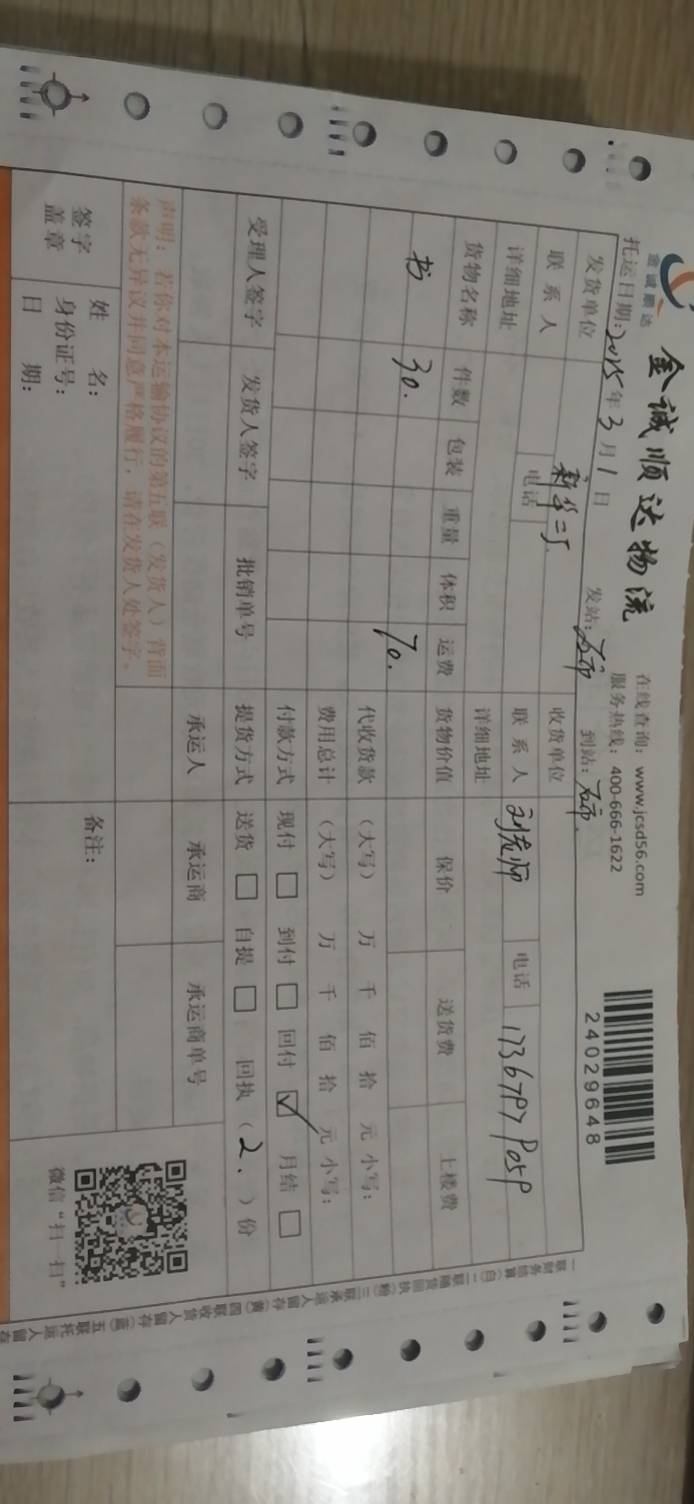 金诚顺达
金诚顺达物流
在线查询：www.jcsd56.com
服务热线：400-666-1622
24029648
托运日期：2015年3月1日 发站： 到站：
发货单位 新华二厂 收货单位
联系人 电话 联系人 刘老师 电话
详细地址 详细地址
货物名称 件数 包装 重量 体积 运费 货物价值 保价 送货费 上楼费
书 30. 70.
代收货款 （大写） 万 千 佰 拾 元 小写：
费用总计 （大写） 万 千 佰 拾 元 小写：
付款方式 现付 □ 到付 □ 回付 ☑ 月结 □
受理人签字 发货人签字 批销单号 提货方式 送货 □ 自提 □ 回执（2.）份
承运人 承运商 承运商单号
声明：若你对本运输协议的第五联（发货人）背面
条款无异议并同意严格履行，请在发货人处签字。
签字
盖章
姓 名：
身份证号：
日 期：
备注：
微信“扫一扫”
一联财务结算(白) 二联随货回执(粉) 三联承运人留存(黄) 四联收货人留存(蓝) 五联托运人留存